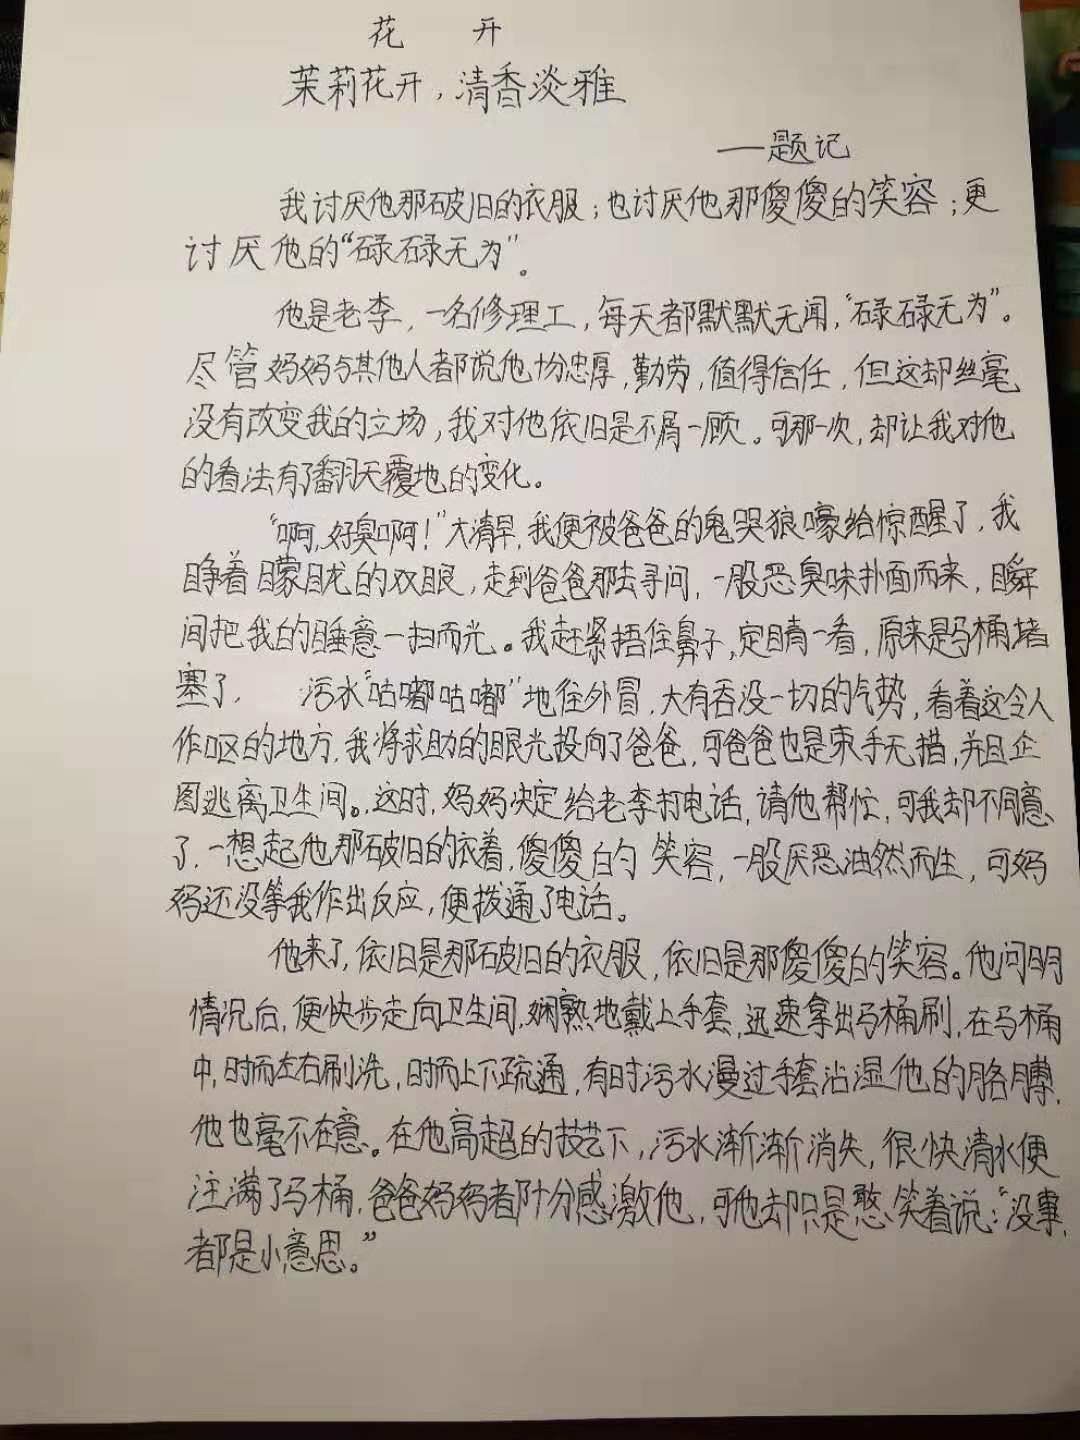 花 开
茉莉花开，清香淡雅
——题记
我讨厌他那破旧的衣服；也讨厌他那傻傻的笑容；更
讨厌他的“碌碌无为”。
他是老李，一名修理工，每天都默默无闻，“碌碌无为”。
尽管妈妈与其他人都说他十分忠厚，勤劳，值得信任，但这却丝毫
没有改变我的立场，我对他依旧是不屑一顾。可那一次，却让我对他
的看法有了翻天覆地的变化。
“啊，好臭啊！”大清早，我便被爸爸的鬼哭狼嚎给惊醒了，我
睁着朦胧的双眼，走到爸爸那去寻问，一股恶臭味扑面而来，瞬
间把我的睡意一扫而光。我赶紧捂住鼻子，定睛一看，原来是马桶堵
塞了， 污水“咕嘟咕嘟”地往外冒，大有吞没一切的气势，看着这令人
作呕的地方，我将求助的眼光投向了爸爸，可爸爸也是束手无措，并且企
图逃离卫生间。这时，妈妈决定给老李打电话，请他帮忙，可我却不同意
了，一想起他那破旧的衣着，傻傻的笑容，一股厌恶油然而生，可妈
妈还没等我作出反应，便拨通了电话。
他来了，依旧是那破旧的衣服，依旧是那傻傻的笑容。他问明
情况后，便快步走向卫生间，娴熟地戴上手套，迅速拿出马桶刷，在马桶
中，时而左右刷洗，时而上下疏通，有时污水漫过手套沾湿他的胳膊，
他也毫不在意。在他高超的技艺下，污水渐渐消失，很快清水便
注满了马桶，爸爸妈妈都十分感激他，可他却只是憨笑着说：“没事，
都是小意思。”